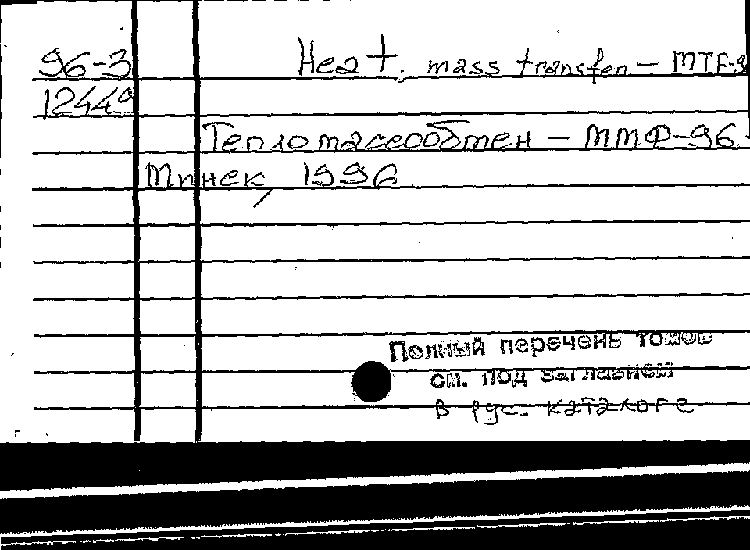 96-3 Heat, mass transfer – MTF-9
1244°
Тепломассообмен – ММФ-96
Минск, 1996
Полный перечень томов
см. под заглавием
в рус. каталоге